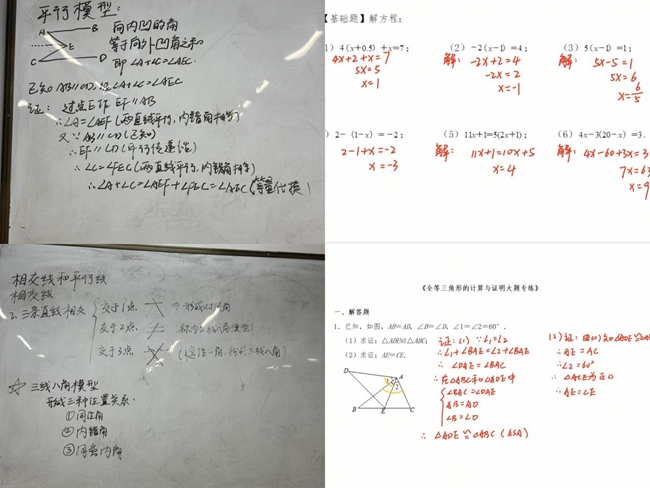 平行模型:
A B
E
C D
向内凹的角
等于向外凹角之和
即 ∠A+∠C=∠AEC.
已知 AB∥CD, 证∠A+∠C=∠AEC
证: 过点E作 EF∥AB
∴∠A=∠AEF (两直线平行, 内错角相等)
又∵AB∥CD (已知)
∴EF∥CD (平行传递性)
∴∠C=∠FEC (两直线平行, 内错角相等)
∴∠A+∠C=∠AEF+∠FEC=∠AEC (等量代换)
【基础题】解方程:
1) 4(x+0.5)+x=7;
4x+2+x=7
5x=5
x=1
(2) -2(x-1)=4;
解: -2x+2=4
-2x=2
x=-1
(3) 5(x-1)=1;
解: 5x-5=1
5x=6
x=6/5
2-(1-x)=-2;
2-1+x=-2
x=-3
(5) 11x+1=5(2x+1);
解: 11x+1=10x+5
x=4
(6) 4x-3(20-x)=3.
解: 4x-60+3x=3
7x=63
x=9
相交线和平行线
相交线
2. 三条直线相交
交于1点
交于2点
交于3点
☆ 三线八角模型
形成三种位置关系.
①同位角
②内错角
③同旁内角
《全等三角形的计算与证明大题专练》
一、解答题
1. 已知,如图,AB=AD,∠B=∠D,∠1=∠2=60°.
(1)求证:△ADE≌△ABC;
(2)求证:AE=CE.
D A
1 2
B E C
证:(1) ∵∠1=∠2
∴∠1+∠BAE=∠2+∠BAE
∴∠DAE=∠BAC
∴在△ABC和△ADE中
∠BAC=∠DAE
AB=AD
∠B=∠D
∴△ADE≌△ABC (ASA)
(2) 证: 由(1)知△ADE≌△
∴AE=AC
∵∠2=60°
∴△ACE为正
∴AE=CE